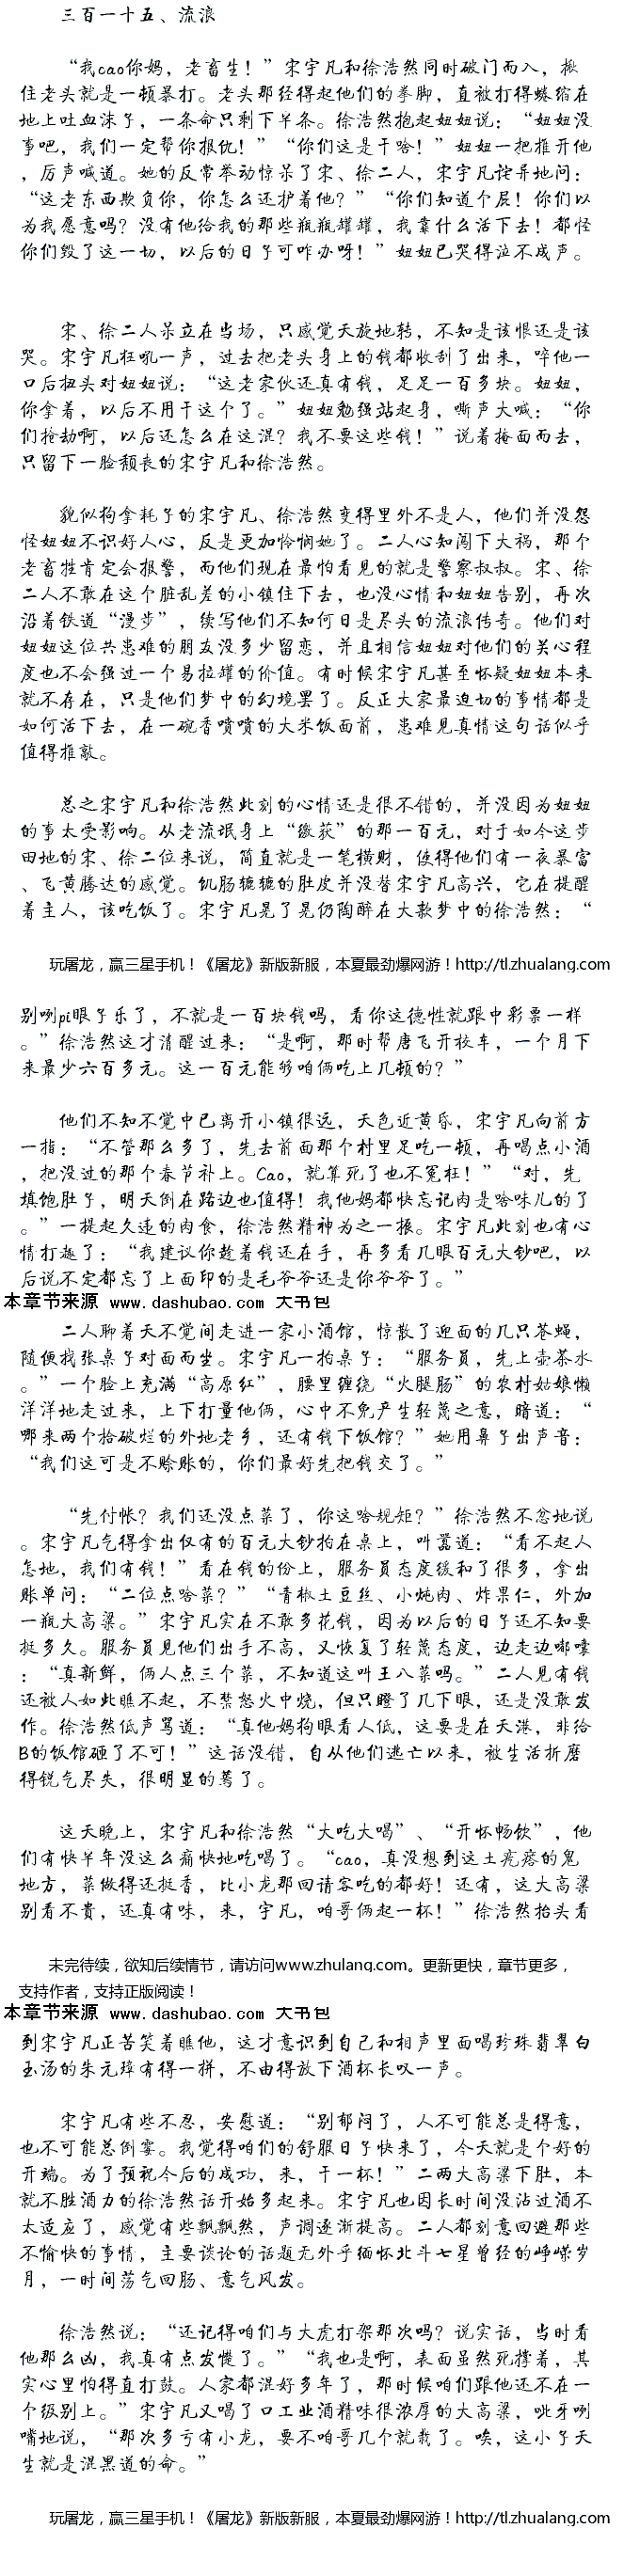 三百一十五、流浪
“我cao你妈，老畜生！”宋宇凡和徐浩然同时破门而入，揪
住老头就是一顿暴打。老头那经得起他们的拳脚，直被打得蜷缩在
地上吐血沫子，一条命只剩下半条。徐浩然抱起妞妞说：“妞妞没
事吧，我们一定帮你报仇！”“你们这是干啥！”妞妞一把推开他
，厉声喊道。她的反常举动惊呆了宋、徐二人，宋宇凡诧异地问：
“这老东西欺负你，你怎么还护着他？”“你们知道个屁！你们以
为我愿意吗？没有他给我的那些瓶瓶罐罐，我靠什么活下去！都怪
你们毁了这一切，以后的日子可咋办呀！”妞妞已哭得泣不成声。
宋、徐二人呆立在当场，只感觉天旋地转，不知是该恨还是该
哭。宋宇凡狂吼一声，过去把老头身上的钱都收刮了出来，啐他一
口后扭头对妞妞说：“这老家伙还真有钱，足足一百多块。妞妞，
你拿着，以后不用干这个了。”妞妞勉强站起身，嘶声大喊：“你
们抢劫啊，以后还怎么在这混？我不要这些钱！”说着掩面而去，
只留下一脸颓丧的宋宇凡和徐浩然。
貌似狗拿耗子的宋宇凡、徐浩然变得里外不是人，他们并没怨
怪妞妞不识好人心，反是更加怜悯她了。二人心知闯下大祸，那个
老畜牲肯定会报警，而他们现在最怕看见的就是警察叔叔。宋、徐
二人不敢在这个脏乱差的小镇住下去，也没心情和妞妞告别，再次
沿着铁道“漫步”，续写他们不知何日是尽头的流浪传奇。他们对
妞妞这位共患难的朋友没多少留恋，并且相信妞妞对他们的关心程
度也不会强过一个易拉罐的价值。有时候宋宇凡甚至怀疑妞妞本来
就不存在，只是他们梦中的幻境罢了。反正大家最迫切的事情都是
如何活下去，在一碗香喷喷的大米饭面前，患难见真情这句话似乎
值得推敲。
总之宋宇凡和徐浩然此刻的心情还是很不错的，并没因为妞妞
的事太受影响。从老流氓身上“缴获”的那一百元，对于如今这步
田地的宋、徐二位来说，简直就是一笔横财，使得他们有一夜暴富
、飞黄腾达的感觉。饥肠辘辘的肚皮并没替宋宇凡高兴，它在提醒
着主人，该吃饭了。宋宇凡晃了晃仍陶醉在大款梦中的徐浩然：“
玩屠龙，赢三星手机！《屠龙》新版新服，本夏最劲爆网游！http://tl.zhualang.com
别咧pi眼子乐了，不就是一百块钱吗，看你这德性就跟中彩票一样
。”徐浩然这才清醒过来：“是啊，那时帮唐飞开校车，一个月下
来最少六百多元。这一百元能够咱俩吃上几顿的？”
他们不知不觉中已离开小镇很远，天色近黄昏，宋宇凡向前方
一指：“不管那么多了，先去前面那个村里足吃一顿，再喝点小酒
，把没过的那个春节补上。Cao，就算死了也不冤枉！”“对，先
填饱肚子，明天倒在路边也值得！我他妈都快忘记肉是啥味儿的了
。”一提起久违的肉食，徐浩然精神为之一振。宋宇凡此刻也有心
情打趣了：“我建议你趁着钱还在手，再多看几眼百元大钞吧，以
后说不定都忘了上面印的是毛爷爷还是你爷爷了。”
本章节来源 www.dashubao.com 大书包
二人聊着天不觉间走进一家小酒馆，惊散了迎面的几只苍蝇，
随便找张桌子对面而坐。宋宇凡一拍桌子：“服务员，先上壶茶水
。”一个脸上充满“高原红”，腰里缠绕“火腿肠”的农村姑娘懒
洋洋地走过来，上下打量他俩，心中不免产生轻蔑之意，暗道：“
哪来两个拾破烂的外地老乡，还有钱下饭馆？”她用鼻子出声音：
“我们这可是不赊账的，你们最好先把钱交了。”
“先付帐？我们还没点菜了，你这啥规矩？”徐浩然不忿地说
。宋宇凡气得拿出仅有的百元大钞拍在桌上，叫嚣道：“看不起人
怎地，我们有钱！”看在钱的份上，服务员态度缓和了很多，拿出
账单问：“二位点啥菜？”“青椒土豆丝、小炖肉、炸果仁，外加
一瓶大高粱。”宋宇凡实在不敢多花钱，因为以后的日子还不知要
挺多久。服务员见他们出手不高，又恢复了轻蔑态度，边走边嘟囔
：“真新鲜，俩人点三个菜，不知道这叫王八菜吗。”二人见有钱
还被人如此瞧不起，不禁怒火中烧，但只瞪了几下眼，还是没敢发
作。徐浩然低声骂道：“真他妈狗眼看人低，这要是在天港，非给
B的饭馆砸了不可！”这话没错，自从他们逃亡以来，被生活折磨
得锐气尽失，很明显的蔫了。
这天晚上，宋宇凡和徐浩然“大吃大喝”、“开怀畅饮”，他
们有快半年没这么痛快地吃喝了。“cao，真没想到这土疙瘩的鬼
地方，菜做得还挺香，比小龙那回请客吃的都好！还有，这大高粱
别看不贵，还真有味，来，宇凡，咱哥俩起一杯！”徐浩然抬头看
未完待续，欲知后续情节，请访问www.zhulang.com。更新更快，章节更多，
支持作者，支持正版阅读！
本章节来源 www.dashubao.com 大书包
到宋宇凡正苦笑着瞧他，这才意识到自己和相声里面喝珍珠翡翠白
玉汤的朱元璋有得一拼，不由得放下酒杯长叹一声。
宋宇凡有些不忍，安慰道：“别郁闷了，人不可能总是得意，
也不可能总倒霉。我觉得咱们的舒服日子快来了，今天就是个好的
开端。为了预祝今后的成功，来，干一杯！”二两大高粱下肚，本
就不胜酒力的徐浩然话开始多起来。宋宇凡也因长时间没沾过酒不
太适应了，感觉有些飘飘然，声调逐渐提高。二人都刻意回避那些
不愉快的事情，主要谈论的话题无外乎缅怀北斗七星曾经的峥嵘岁
月，一时间荡气回肠、意气风发。
徐浩然说：“还记得咱们与大虎打架那次吗？说实话，当时看
他那么凶，我真有点发憷了。”“我也是啊，表面虽然死撑着，其
实心里怕得直打鼓。人家都混好多年了，那时候咱们跟他还不在一
个级别上。”宋宇凡又喝了口工业酒精味很浓厚的大高粱，呲牙咧
嘴地说，“那次多亏有小龙，要不咱哥几个就栽了。唉，这小子天
生就是混黑道的命。”
玩屠龙，赢三星手机！《屠龙》新版新服，本夏最劲爆网游！http://tl.zhualang.com